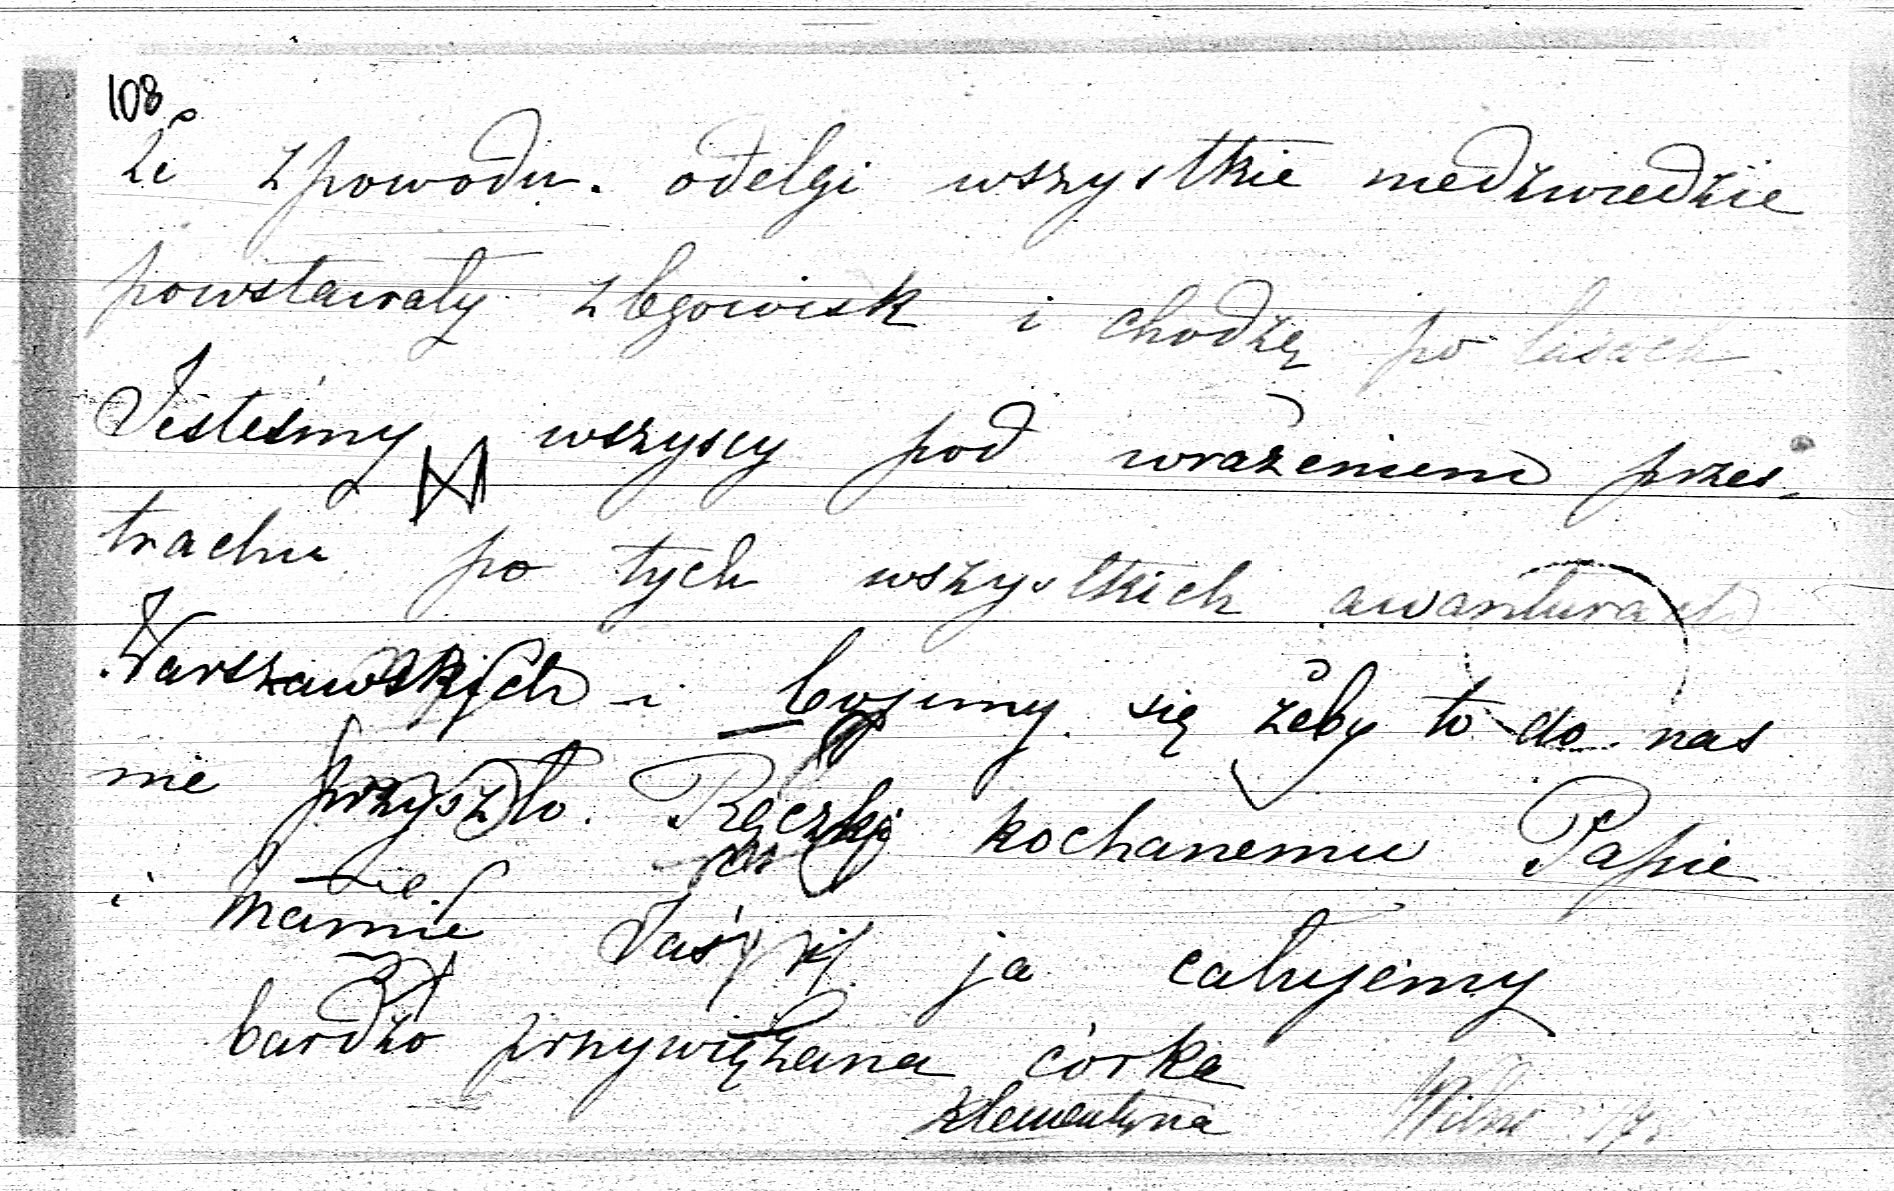 108
że z powodu. odelgi wszystkie niedzwiedzie
powstawały z legowisk i chodzą po lasach
Jesteśmy wszyscy pod wrażeniem przes-
trachu po tych wszystkich awanturach
Warszawskich i bojimy się żeby to do nas
nie przyszło. Rączki kochanemu Papie
i Mamie Jaś i ja całujemy
bardzo przywiązana córka
Klementyna Wilno